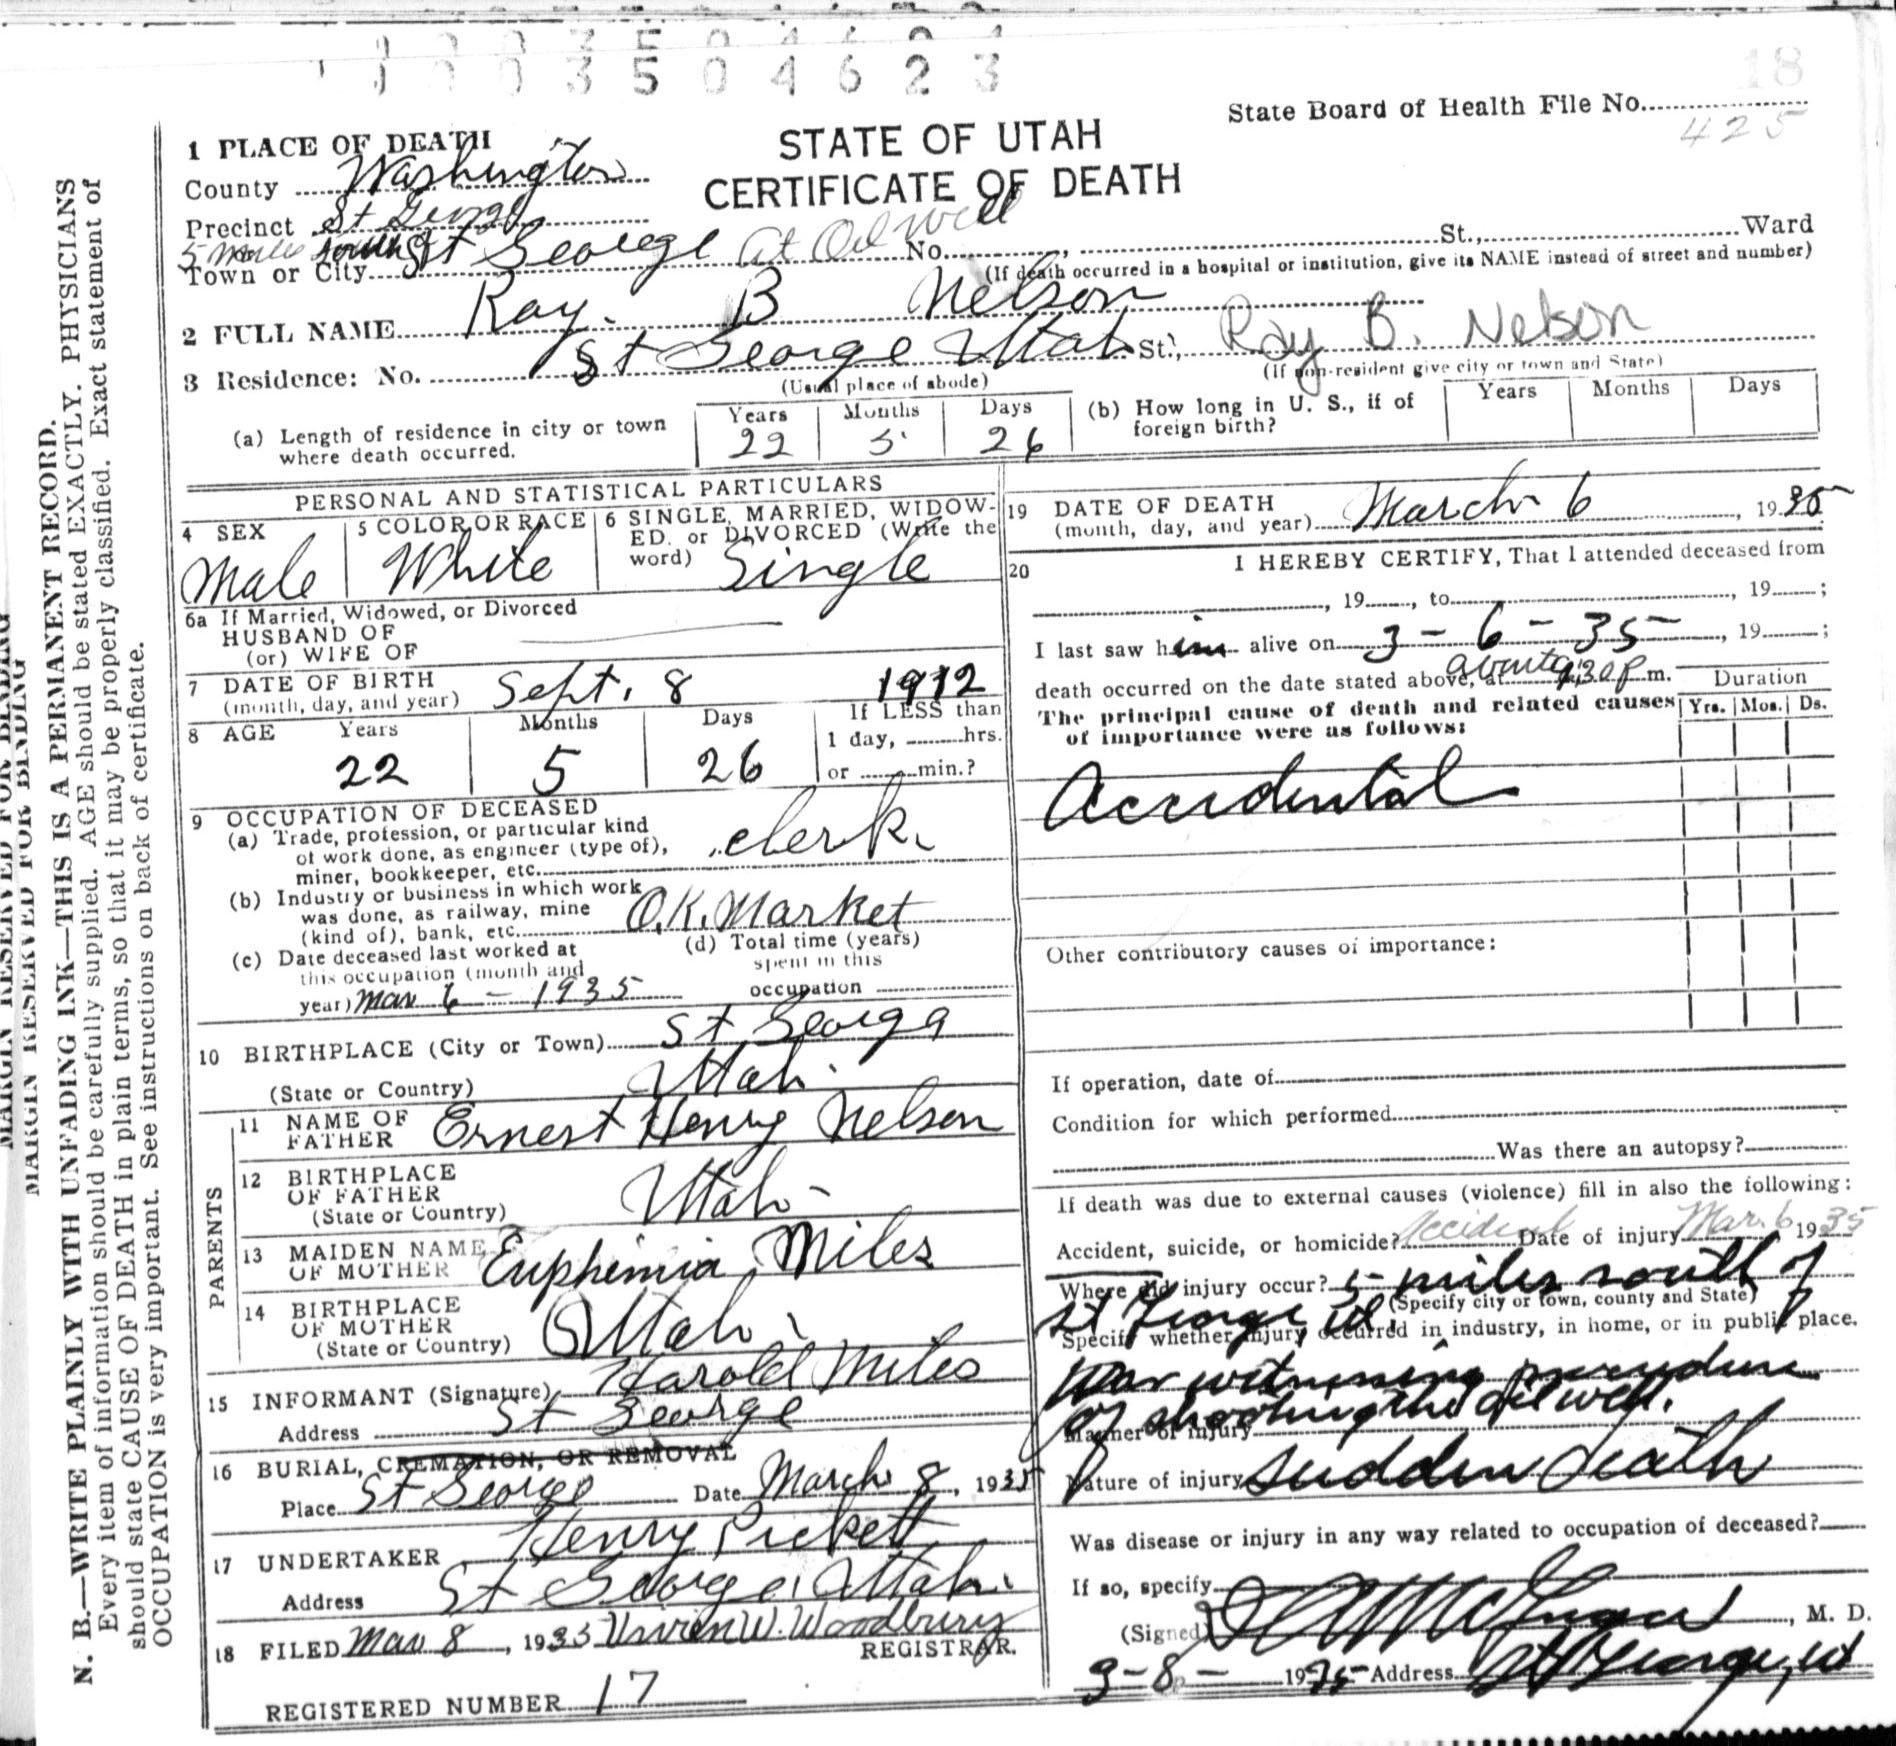 1 0 0 3 5 0 4 6 2 3
18
State Board of Health File No.
425
STATE OF UTAH
CERTIFICATE OF DEATH
1 PLACE OF DEATH
County Washington
Precinct St George
5 miles south of St George At Oil Well
Town or City No. St., Ward
(If death occurred in a hospital or institution, give its NAME instead of street and number)
2 FULL NAME Ray. B Nelson
Ray B. Nelson
3 Residence: No. St George Utah St.,
(Usual place of abode) (If non-resident give city or town and State)
(a) Length of residence in city or town where death occurred. Years 22 Months 5 Days 26
(b) How long in U. S., if of foreign birth? Years Months Days
PERSONAL AND STATISTICAL PARTICULARS
4 SEX Male
5 COLOR OR RACE White
6 SINGLE, MARRIED, WIDOW-
ED. or DIVORCED (Write the
word) Single
6a If Married, Widowed, or Divorced
HUSBAND OF
(or) WIFE OF
7 DATE OF BIRTH
(month, day, and year) Sept. 8 1912
8 AGE Years 22 Months 5 Days 26
If LESS than
1 day, hrs.
or min.?
9 OCCUPATION OF DECEASED
(a) Trade, profession, or particular kind
of work done, as engineer (type of),
miner, bookkeeper, etc. clerk
(b) Industry or business in which work
was done, as railway, mine
(kind of), bank, etc. O.K. Market
(c) Date deceased last worked at
this occupation (month and
year) Mar 6 - 1935
(d) Total time (years)
spent in this
occupation
10 BIRTHPLACE (City or Town) St George
(State or Country) Utah.
PARENTS
11 NAME OF
FATHER Ernest Henry Nelson
12 BIRTHPLACE
OF FATHER
(State or Country) Utah
13 MAIDEN NAME
OF MOTHER Euphemia Miles
14 BIRTHPLACE
OF MOTHER
(State or Country) Utah
15 INFORMANT (Signature) Harold Miles
Address St George
16 BURIAL, CREMATION, OR REMOVAL
Place St George Date March 8, 1935
17 UNDERTAKER Henry Pickett
Address St George, Utah.
18 FILED Mar 8, 1935 Vivien W. Woodbury
REGISTRAR.
REGISTERED NUMBER 17
19 DATE OF DEATH
(month, day, and year) March 6, 1935
20 I HEREBY CERTIFY, That I attended deceased from
, 19 , to , 19 ;
I last saw him alive on 3-6-35, 19 ;
death occurred on the date stated above, at about 9:30 p m.
Duration
Yrs. Mos. Ds.
The principal cause of death and related causes
of importance were as follows:
Accidental
Other contributory causes of importance:
If operation, date of
Condition for which performed
Was there an autopsy?
If death was due to external causes (violence) fill in also the following:
Accident, suicide, or homicide? Accident Date of injury Mar. 6 1935
Where did injury occur? 5 miles south of
St George Ut.
(Specify city or town, county and State)
Specify whether injury occurred in industry, in home, or in public place.
Was witnessing procedure
of shooting the oil well.
Manner of injury
Nature of injury sudden death
Was disease or injury in any way related to occupation of deceased?
If so, specify
(Signed) , M. D.
3-8- 1935 Address St George, Ut
MARGIN RESERVED FOR BINDING
MARGIN RESERVED FOR BINDING
N. B.—WRITE PLAINLY WITH UNFADING INK—THIS IS A PERMANENT RECORD.
Every item of information should be carefully supplied. AGE should be stated EXACTLY. PHYSICIANS
should state CAUSE OF DEATH in plain terms, so that it may be properly classified. Exact statement of
OCCUPATION is very important. See instructions on back of certificate.